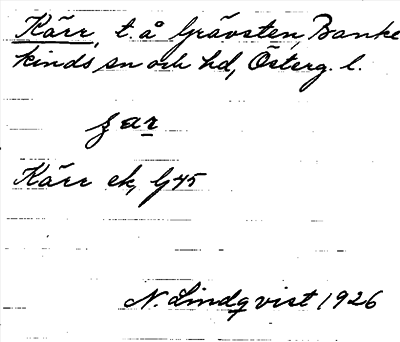 Kärr, t. å Grävsten, Banke
kinds sn och hd, Österg. l.
ɟ a r
Kärr ek, Gj 45
N. Lindqvist 1926